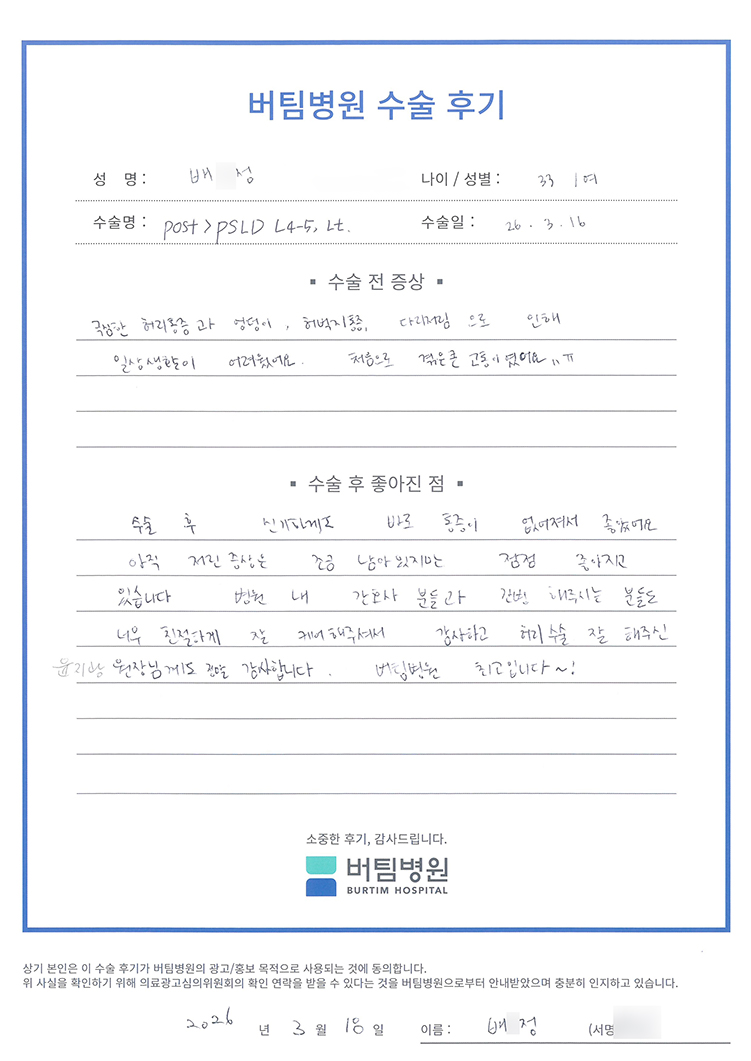 버팀병원 수술 후기
성 명 : 배 정 나이 / 성별 : 33 / 여
수술명 : post > PSLD L4-5, Lt. 수술일 : 26. 3. 16
▪ 수술 전 증상 ▪
극심한 허리통증과 엉덩이, 허벅지통증, 다리저림 으로 인해
일상생활이 어려웠어요. 처음으로 겪은 큰 고통이였어요,, ㅠ
▪ 수술 후 좋아진 점 ▪
수술 후 신기하게도 바로 통증이 없어져서 좋았어요
아직 저린 증상은 조금 남아있지만 점점 좋아지고
있습니다 병원 내 간호사 분들과 간병 해주시는 분들도
너무 친절하게 잘 케어해주셔서 감사하고 허리수술 잘 해주신
원장님께도 감사합니다. 버팀병원 최고입니다~!
소중한 후기, 감사드립니다.
버팀병원
BURTIM HOSPITAL
상기 본인은 이 수술 후기가 버팀병원의 광고/홍보 목적으로 사용되는 것에 동의합니다.
위 사실을 확인하기 위해 의료광고심의위원회의 확인 연락을 받을 수 있다는 것을 버팀병원으로부터 안내받았으며 충분히 인지하고 있습니다.
2026 년 3 월 18 일 이름 : 배 정 (서명